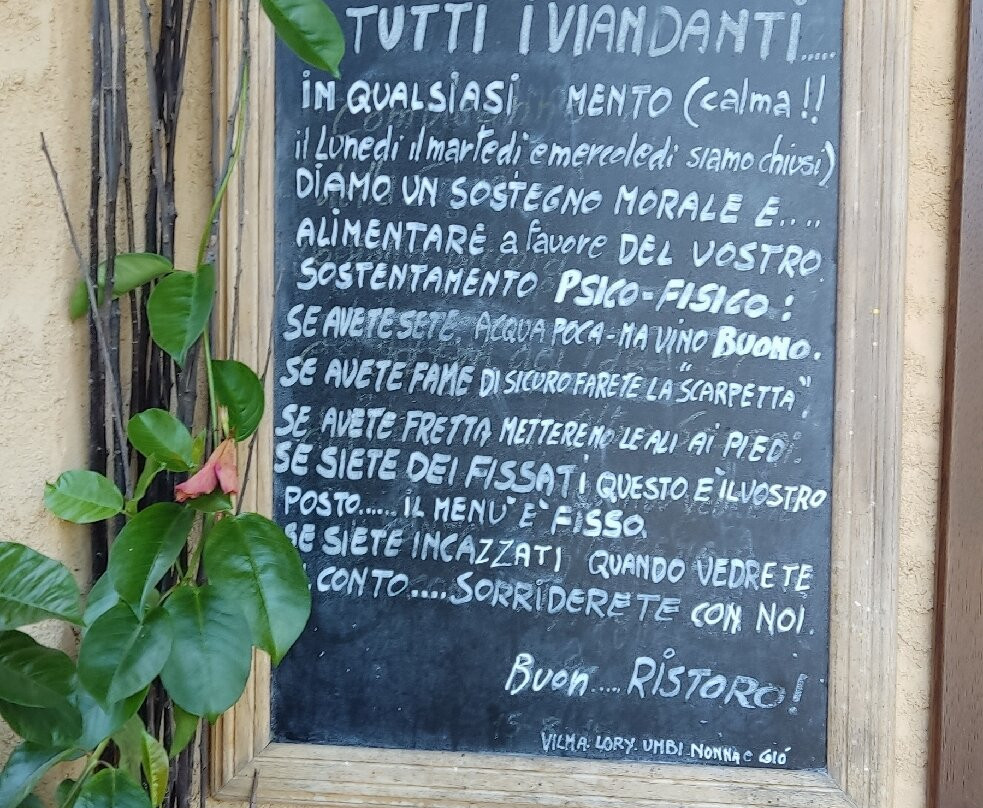 TUTTI I VIANDANTI.....
IN QUALSIASI MENTO (calma!!
il Lunedì il martedì e mercoledì siamo chiusi)
DIAMO UN SOSTEGNO MORALE E....
ALIMENTARE a favore DEL VOSTRO
SOSTENTAMENTO PSICO-FISICO!
SE AVETE SETE ACQUA POCA-MA VINO BUONO.
SE AVETE FAME DI SICURO FARETE LA "SCARPETTA"!
SE AVETE FRETTA METTEREMO LE ALI AI PIEDI
SE SIETE DEI FISSATI QUESTO È IL VOSTRO
POSTO...... IL MENU' E' FISSO.
SE SIETE INCAZZATI QUANDO VEDRETE
CONTO....SORRIDERETE CON NOI.
Buon.... RISTORO!
VILMA. LORY. UMBI NONNA e GIÓ